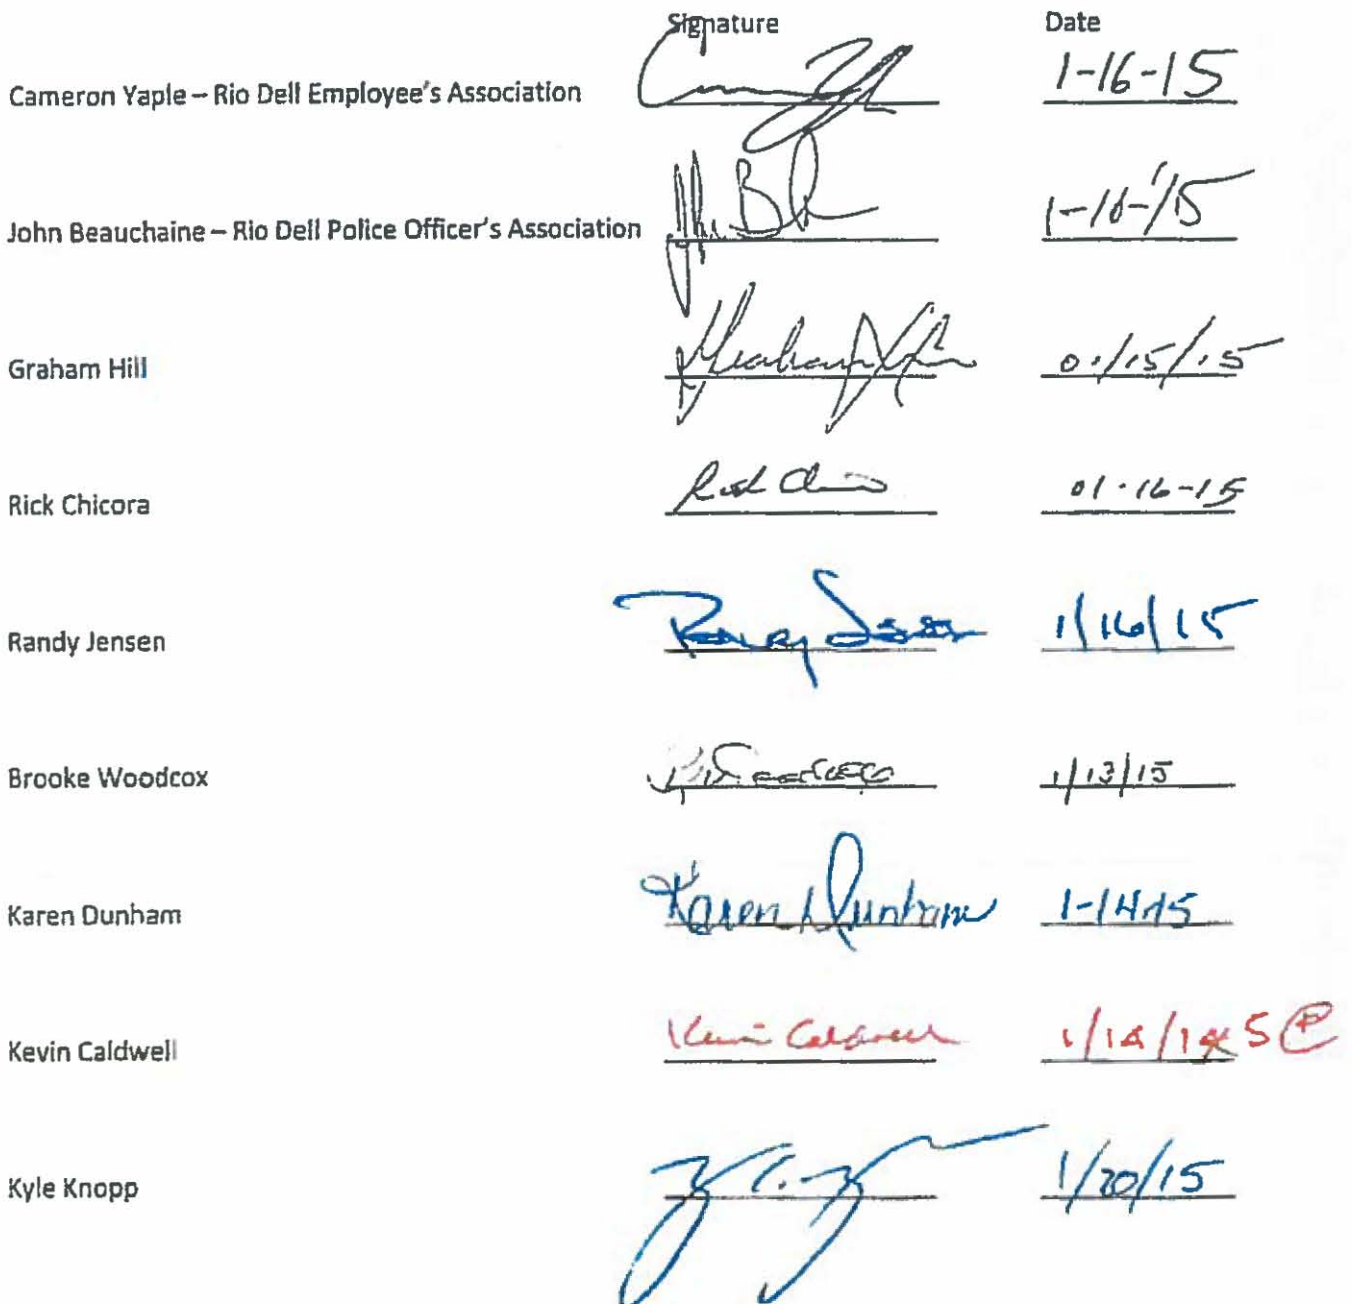 Signature Date
Cameron Yaple – Rio Dell Employee's Association 1-16-15
John Beauchaine – Rio Dell Police Officer's Association
Graham Hill Graham Hill 01/15/15
Rick Chicora 01-16-15
Randy Jensen Randy Jensen 1/16/15
Brooke Woodcox 1/13/15
Karen Dunham Karen Dunham 1-14-15
Kevin Caldwell Kevin Caldwell 1/14/14 5
Kyle Knopp 1/20/15